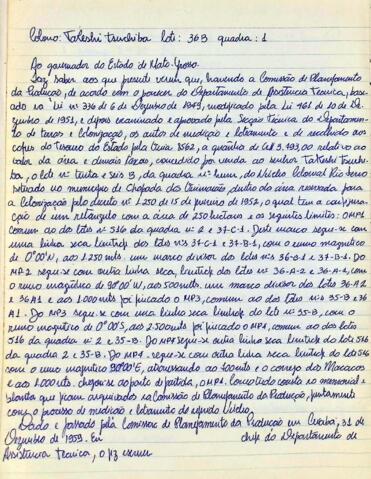 Colono: Takeshi Tsuchiba lote: 36B quadra: 1
Ao governador do Estado de Mato-Grosso
Faz saber aos que presente virem que, havendo a Comissão de Planejamento
da Produção, de acordo com o parecer do Departamento de Assistência Técnica, base
ado na Lei nº 336 de 6 de Dezembro de 1949, modificado pela Lei 461 de 10 de De
zembro de 1951, e depois examinado e aprovado pela Secção Técnica do Departamento
de terras e colonização, os autos de medição e loteamento e de recolhido aos
cofres do Tesouro do Estado pela Guia 1562, a quantia de Cr$ 3.493,00 relativo ao
valor da área e demais taxas, concedido por venda ao senhor Takeshi Tsuchi
ba, o lote nº trinta e seis B, da quadra nº hum, do Núcleo Colonial Rio Ferro
situado no município de Chapada dos Guimarães, dentro da área reservada para
a Colonização pelo decreto nº 1.250 de 15 de janeiro de 1952, o qual tem a configu
ração de um retângulo com a área de 250 hectares e os seguintes limites: O MP1
comum ao dos lotes nº 516 da quadra nº 2 e 37-C-1. Deste marco segue-se com
uma linha seca limítrofe dos lotes nºs 37-C-1 e 37-B-1, com o rumo magnético
de 0º00'N, aos 1.250 mts. um marco divisor dos lotes nºs 36-C-1 e 37-B-1. Do
MP2 segue-se com outra linha seca, limítrofe dos lotes nº 36-A-2 e 36-A-1, com
o rumo magnético de 90º00'W, aos 500 mts. um marco divisor dos lotes 36-A2 e
36A1 e aos 1.000 mts foi fincado o MP3, comum ao dos lotes nºs 35-B e 36
A1. Do MP3 segue-se com uma linha seca limítrofe do lote nº 35-B, com o
rumo magnético de 0º00'S, aos 2.500 mts foi fincado o MP4, comum ao dos lotes
516 da quadra nº 2 e 35-B. Do MP4 segue-se outra linha seca limítrofe do lote 516
da quadra 2 e 35-B. Do MP4 segue-se com outra linha seca limítrofe do lote 516
com o rumo magnético 90º00'E, atravessando ao 400 mts o córrego dos Macacos
e aos 1.000 mts. chegou-se ao ponto de partida, o MP1. Como tudo consta no memorial e
planta que ficam arquivados na Comissão de Planejamento da Produção, juntamente
com o processo de medição e loteamento do referido Núcleo.
Dado e passado pela Comissão de Planejamento da Produção em Cuiabá, 31 de
Dezembro de 1959. Eu chefe do Departamento de
Assistência Técnica, o fiz escrever